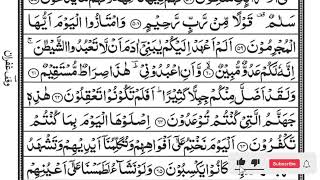 سَلٰمٌ قَوْلًا مِّنْ رَّبٍّ رَّحِيْمٍ ۝٥٨ وَامْتَازُوا الْيَوْمَ اَيُّهَا
وقف غفران
الْمُجْرِمُوْنَ ۝٥٩ اَلَمْ اَعْهَدْ اِلَيْكُمْ يٰبَنِيْٓ اٰدَمَ اَنْ لَّا تَعْبُدُوا الشَّيْطٰنَ
اِنَّهٗ لَكُمْ عَدُوٌّ مُّبِيْنٌ ۝٦٠ وَّاَنِ اعْبُدُوْنِيْ هٰذَا صِرَاطٌ مُّسْتَقِيْمٌ ۝٦١
وَلَقَدْ اَضَلَّ مِنْكُمْ جِبِلًّا كَثِيْرًا اَفَلَمْ تَكُوْنُوْا تَعْقِلُوْنَ ۝٦٢ هٰذِهٖ
جَهَنَّمُ الَّتِيْ كُنْتُمْ تُوْعَدُوْنَ ۝٦٣ اِصْلَوْهَا الْيَوْمَ بِمَا كُنْتُمْ
تَكْفُرُوْنَ ۝٦٤ اَلْيَوْمَ نَخْتِمُ عَلٰٓى اَفْوَاهِهِمْ وَتُكَلِّمُنَآ اَيْدِيْهِمْ وَتَشْهَدُ
اَرْجُلُهُمْ بِمَا كَانُوْا يَكْسِبُوْنَ ۝٦٥ وَلَوْ نَشَآءُ لَطَمَسْنَا عَلٰٓى اَعْيُنِهِمْ
SUBSCRIBE